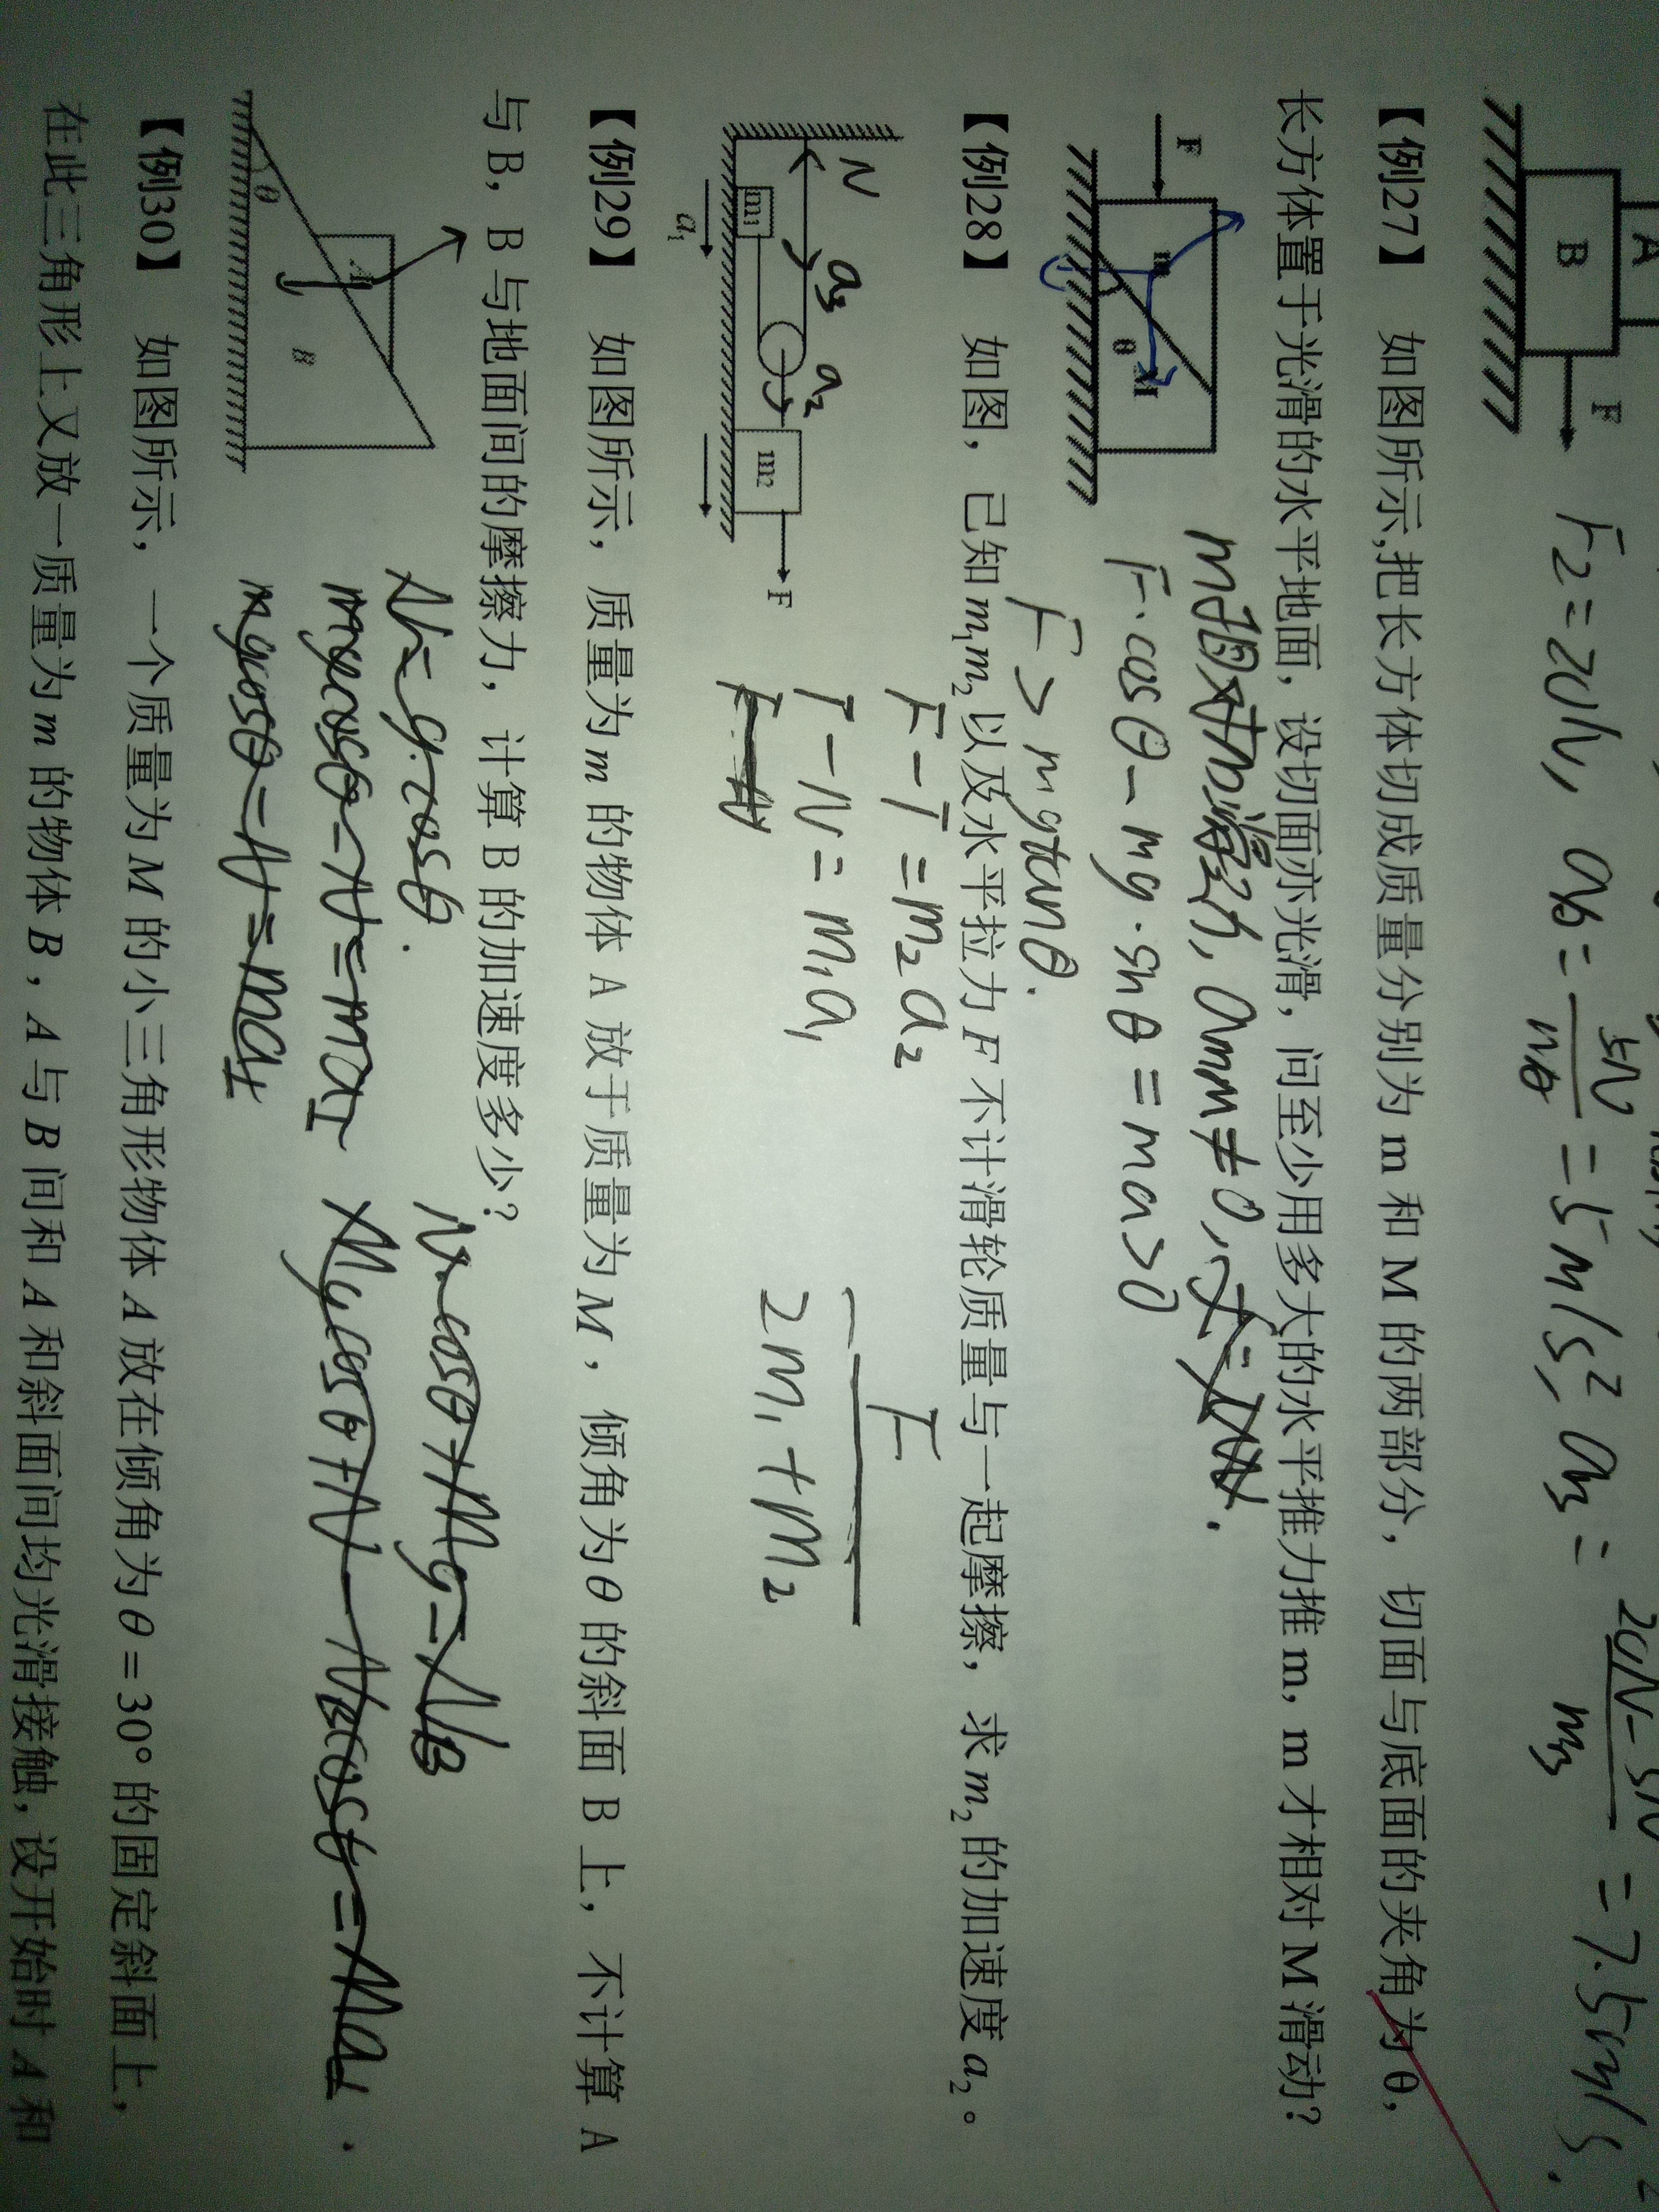 A
B
F
F₂=20N,
a_B = 5N/m_B = 5m/s²,
= 7.5m/s².
【例27】 如图所示,把长方体切成质量分别为 m 和 M 的两部分，切面与底面的夹角为 θ，
长方体置于光滑的水平地面，设切面亦光滑，问至少用多大的水平推力推 m，m 才相对 M 滑动？
F
m
θ
M
m相对m滑动, a_mm≠0,
F·cosθ-mg·sinθ=ma>0
F>mgtanθ.
【例28】 如图，已知 m₁m₂ 以及水平拉力 F 不计滑轮质量与一起摩擦，求 m₂ 的加速度 a₂。
N
a₃
a₂
m₁
m₂
F
a₁
F-T=m₂a₂
T-N=m₁a₁
F/2m₁+m₂
【例29】 如图所示，质量为 m 的物体 A 放于质量为 M，倾角为 θ 的斜面 B 上，不计算 A
与 B，B 与地面间的摩擦力，计算 B 的加速度多少？
A
B
θ
【例30】 如图所示，一个质量为 M 的小三角形物体 A 放在倾角为 θ = 30° 的固定斜面上，
在此三角形上又放一质量为 m 的物体 B，A 与 B 间和 A 和斜面间均光滑接触，设开始时 A 和